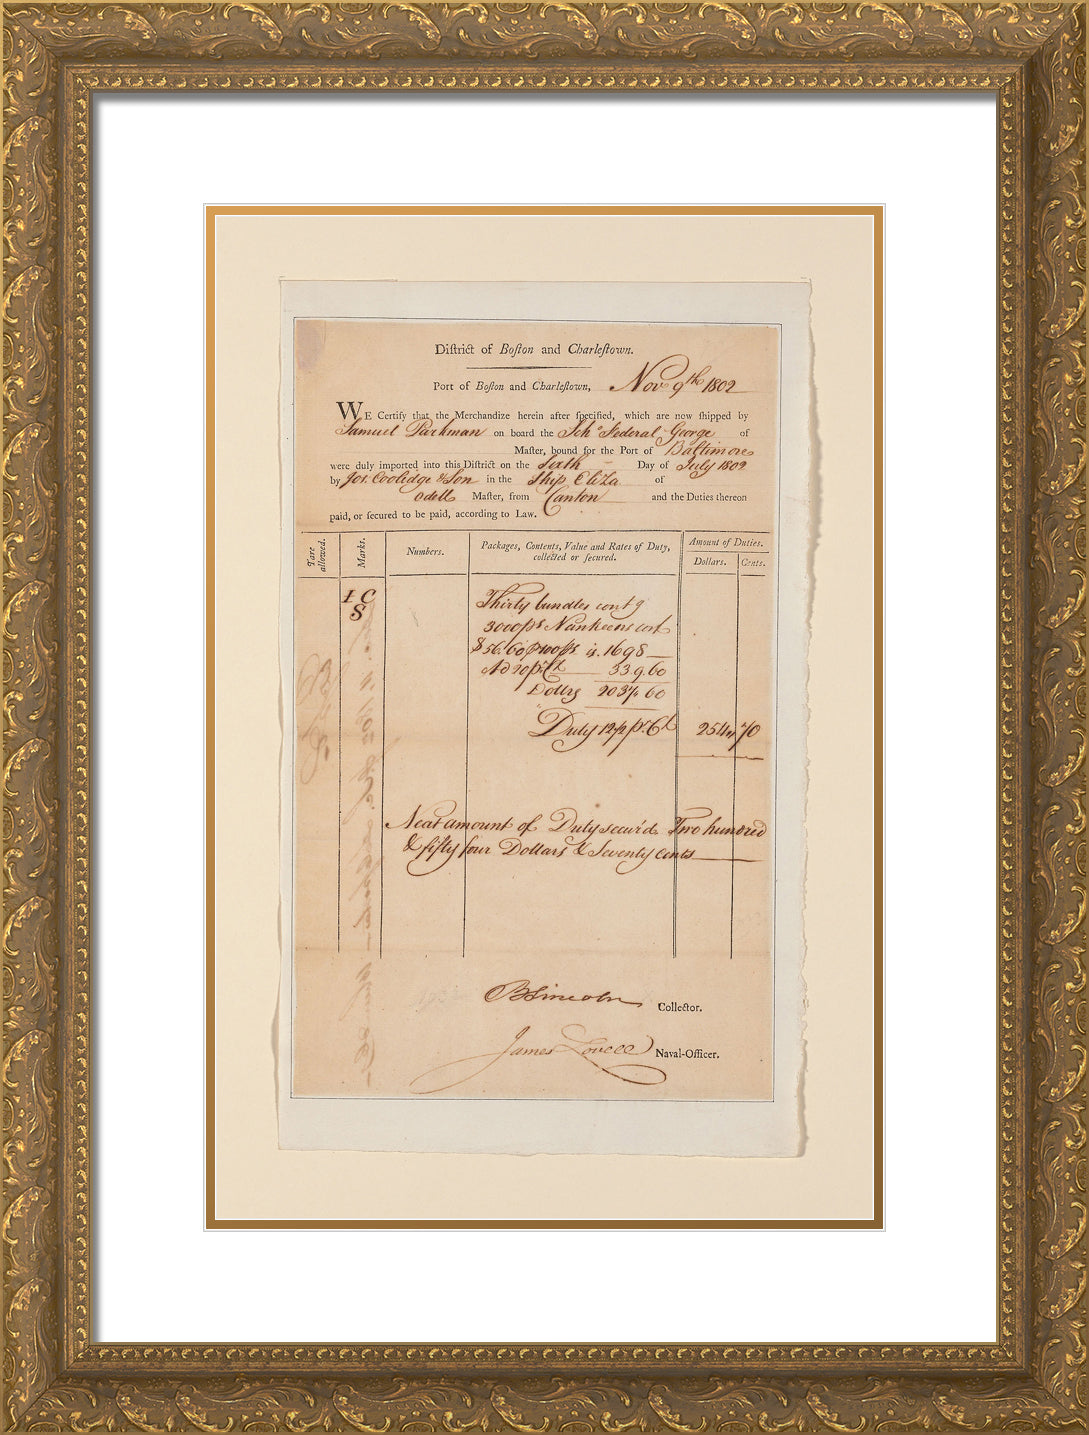 Diſtrict of Boſton and Charleſtown.
Port of Boſton and Charleſtown, Nov 9th 1802
WE Certify that the Merchandize herein after ſpecified, which are now ſhipped by
Samuel Parkman on board the Schr Federal George of
Maſter, bound for the Port of Baltimore
were duly imported into this Diſtrict on the Sixth Day of July 1802
by Jos. Coolidge & Son in the Ship Eliza of
Odell Maſter, from Canton and the Duties thereon
paid, or ſecured to be paid, according to Law.
Tare allowed. Marks. Numbers. Packages, Contents, Value and Rates of Duty, collected or ſecured. Amount of Duties.
Dollars. Cents.
I C
S
Thirty bundles contg
3000 ps Nankeens cost
$56.60 p 100 ps is 1698
Ad 20 p Ct 339.60
Dollrs 2037.60
Duty 12½ pr Ct 254 70
Neat amount of Duty secur'd Two hundred
& fifty four Dollars & Seventy cents
B Lincoln Collector.
James Lovell Naval-Officer.